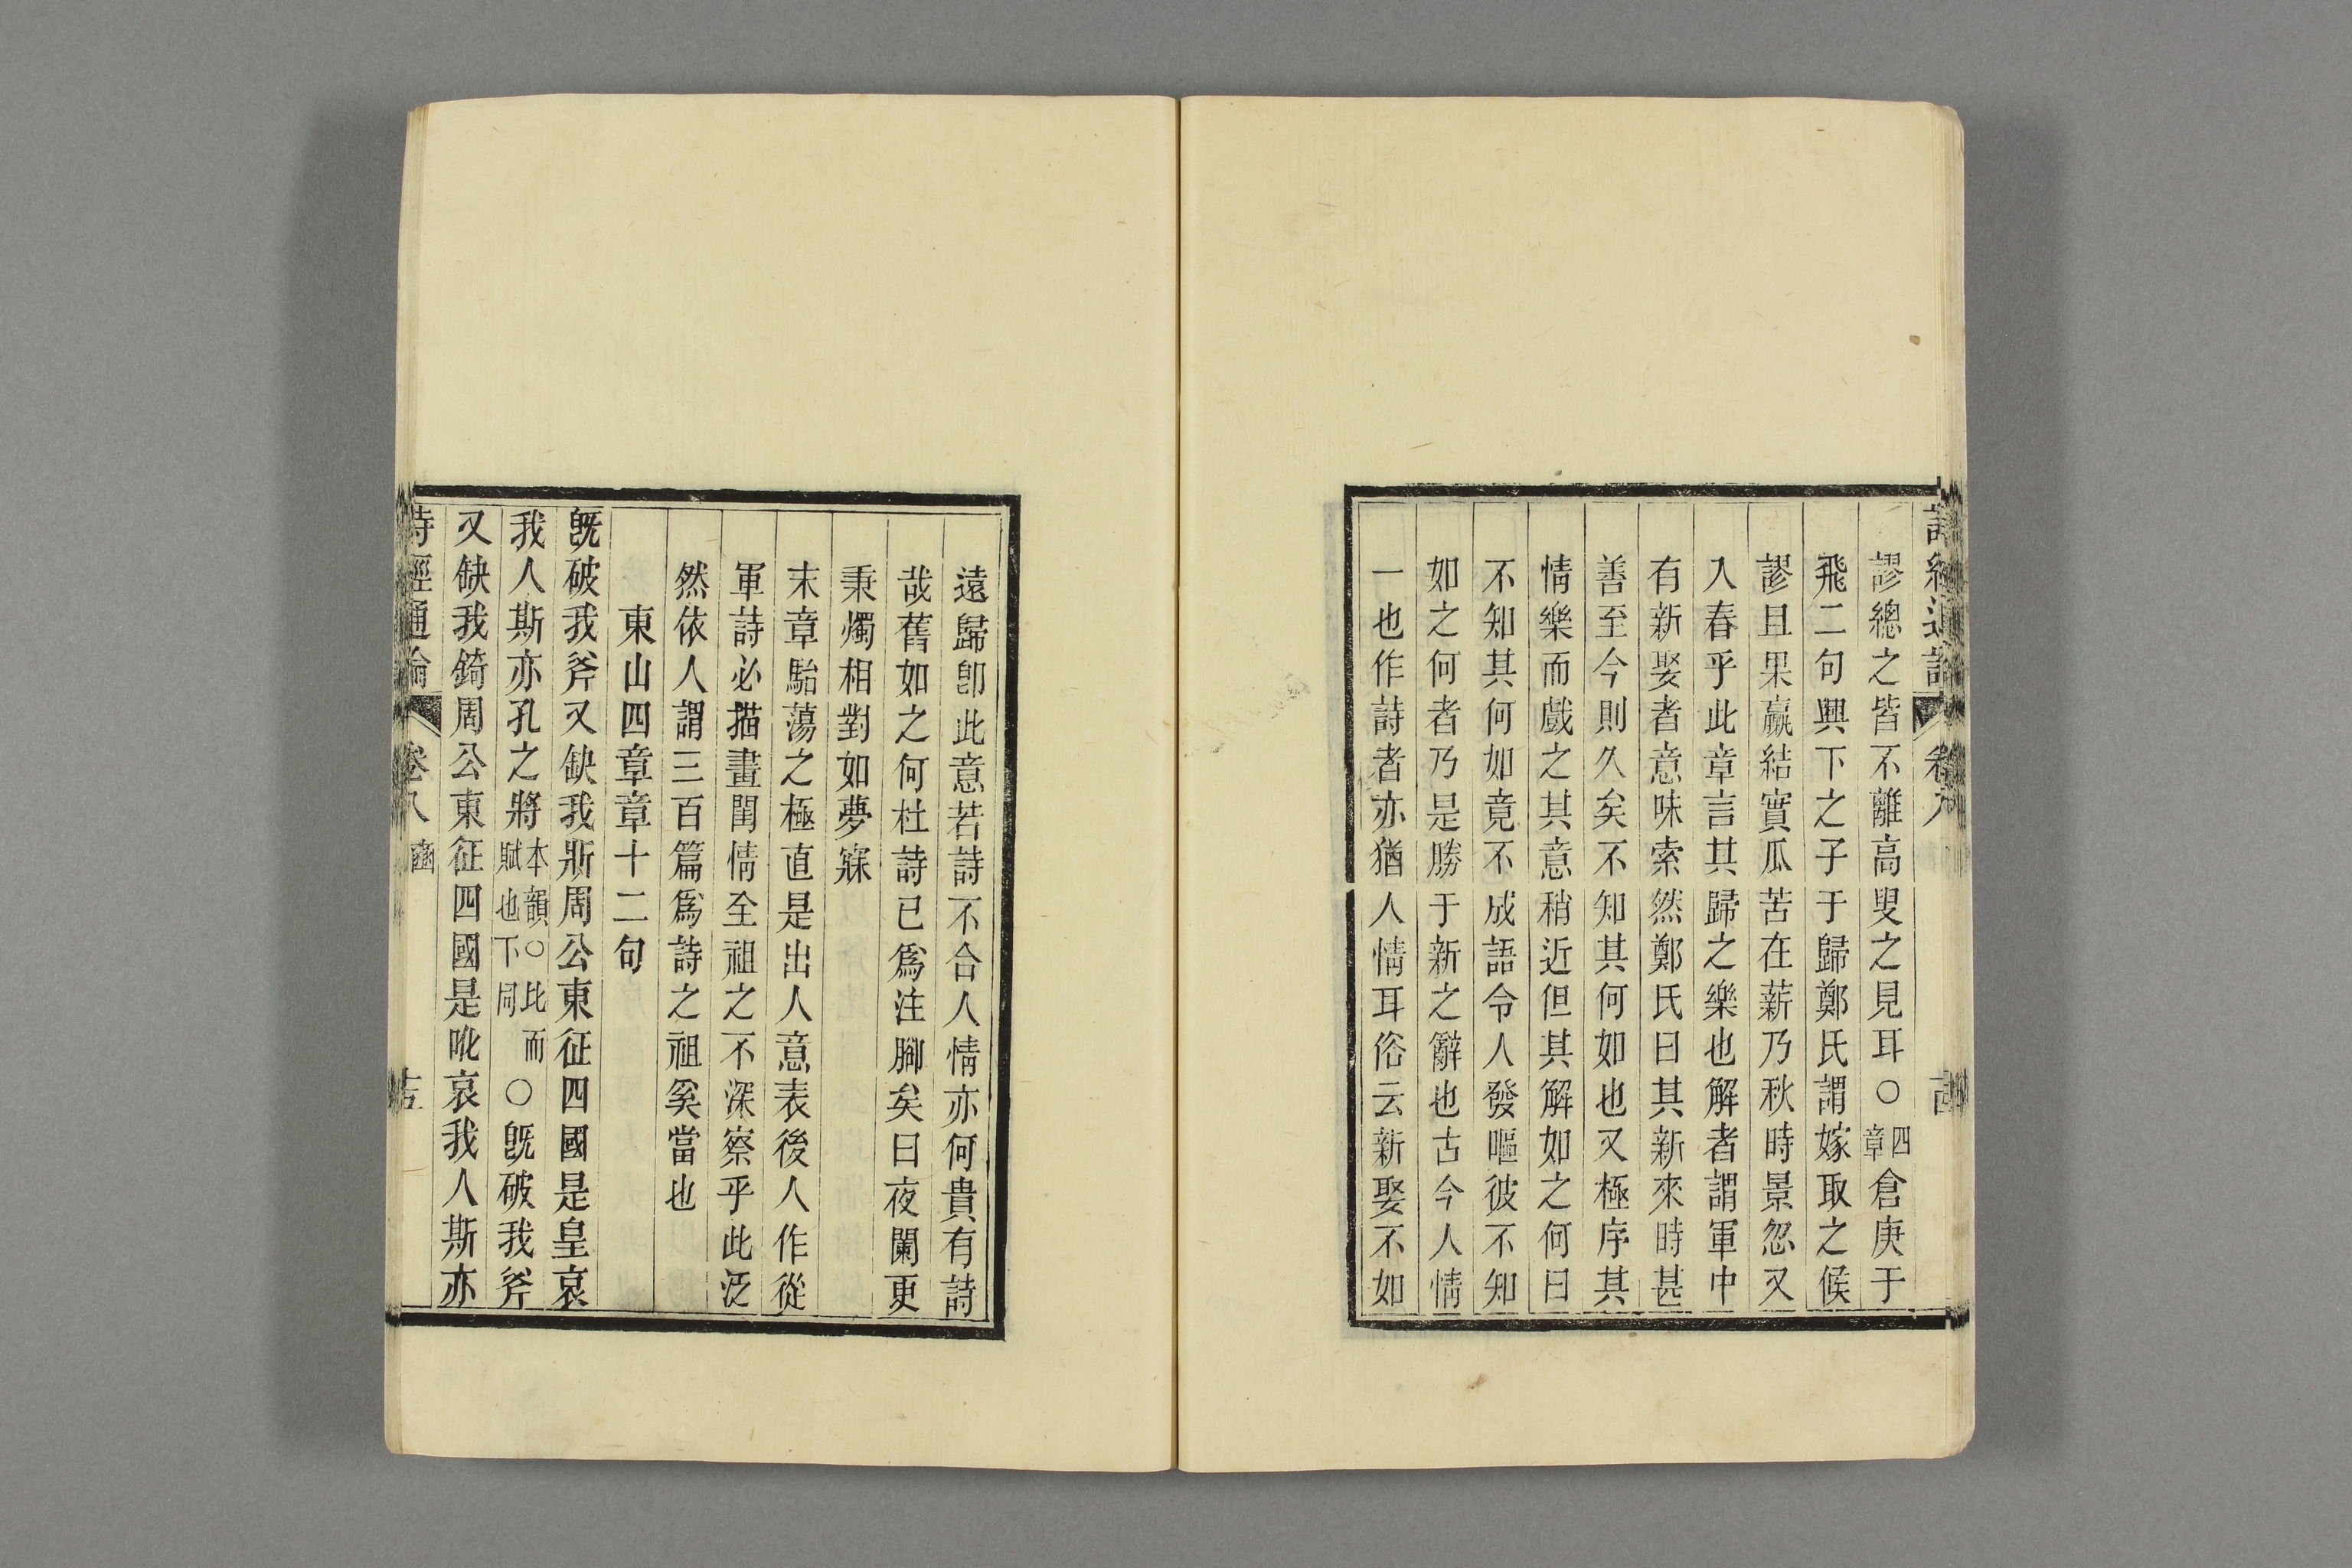 謬總之皆不離高叟之見耳○四章倉庚于
飛二句興下之子于歸鄭氏謂嫁取之候
謬且果臝結實瓜苦在薪乃秋時景忽又
入春乎此章言其歸之樂也解者謂軍中
有新娶者意味索然鄭氏曰其新來時甚
善至今則久矣不知其何如也又極序其
情樂而戲之其意稍近但其解如之何曰
不知其何如竟不成語令人發嘔彼不知
如之何者乃是勝于新之辭也古今人情
一也作詩者亦猶人情耳俗云新娶不如
遠歸卽此意若詩不合人情亦何貴有詩
哉舊如之何杜詩已爲注腳矣曰夜闌更
秉燭相對如夢寐
末章駘蕩之極直是出人意表後人作從
軍詩必描畫閨情全祖之不深察乎此泛
然依人謂三百篇爲詩之祖奚當也
東山四章章十二句
旣破我斧又缺我斨周公東征四國是皇哀
我人斯亦孔之將本韻○比而賦也下同○旣破我斧
又缺我錡周公東征四國是吪哀我人斯亦
詩經通論 卷八 豳